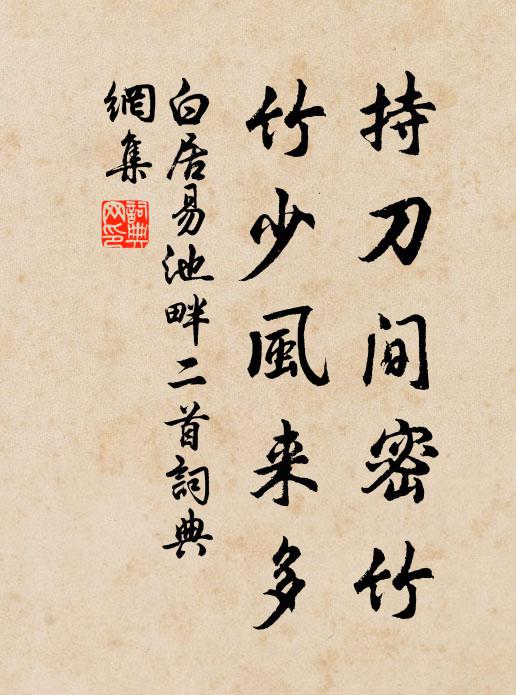 持刀間密竹
竹少風来多
白居易池畔二首詞典
網集
詞典
网印